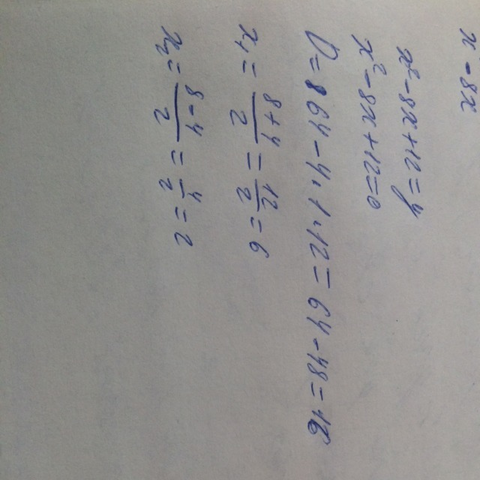 x - 8x
x² - 8x + 12 = y
x² - 8x + 12 = 0
D = 64 - 4 · 1 · 12 = 64 - 48 = 16
x₁ = (8 + 4)/2 = 12/2 = 6
x₂ = (8 - 4)/2 = 4/2 = 2